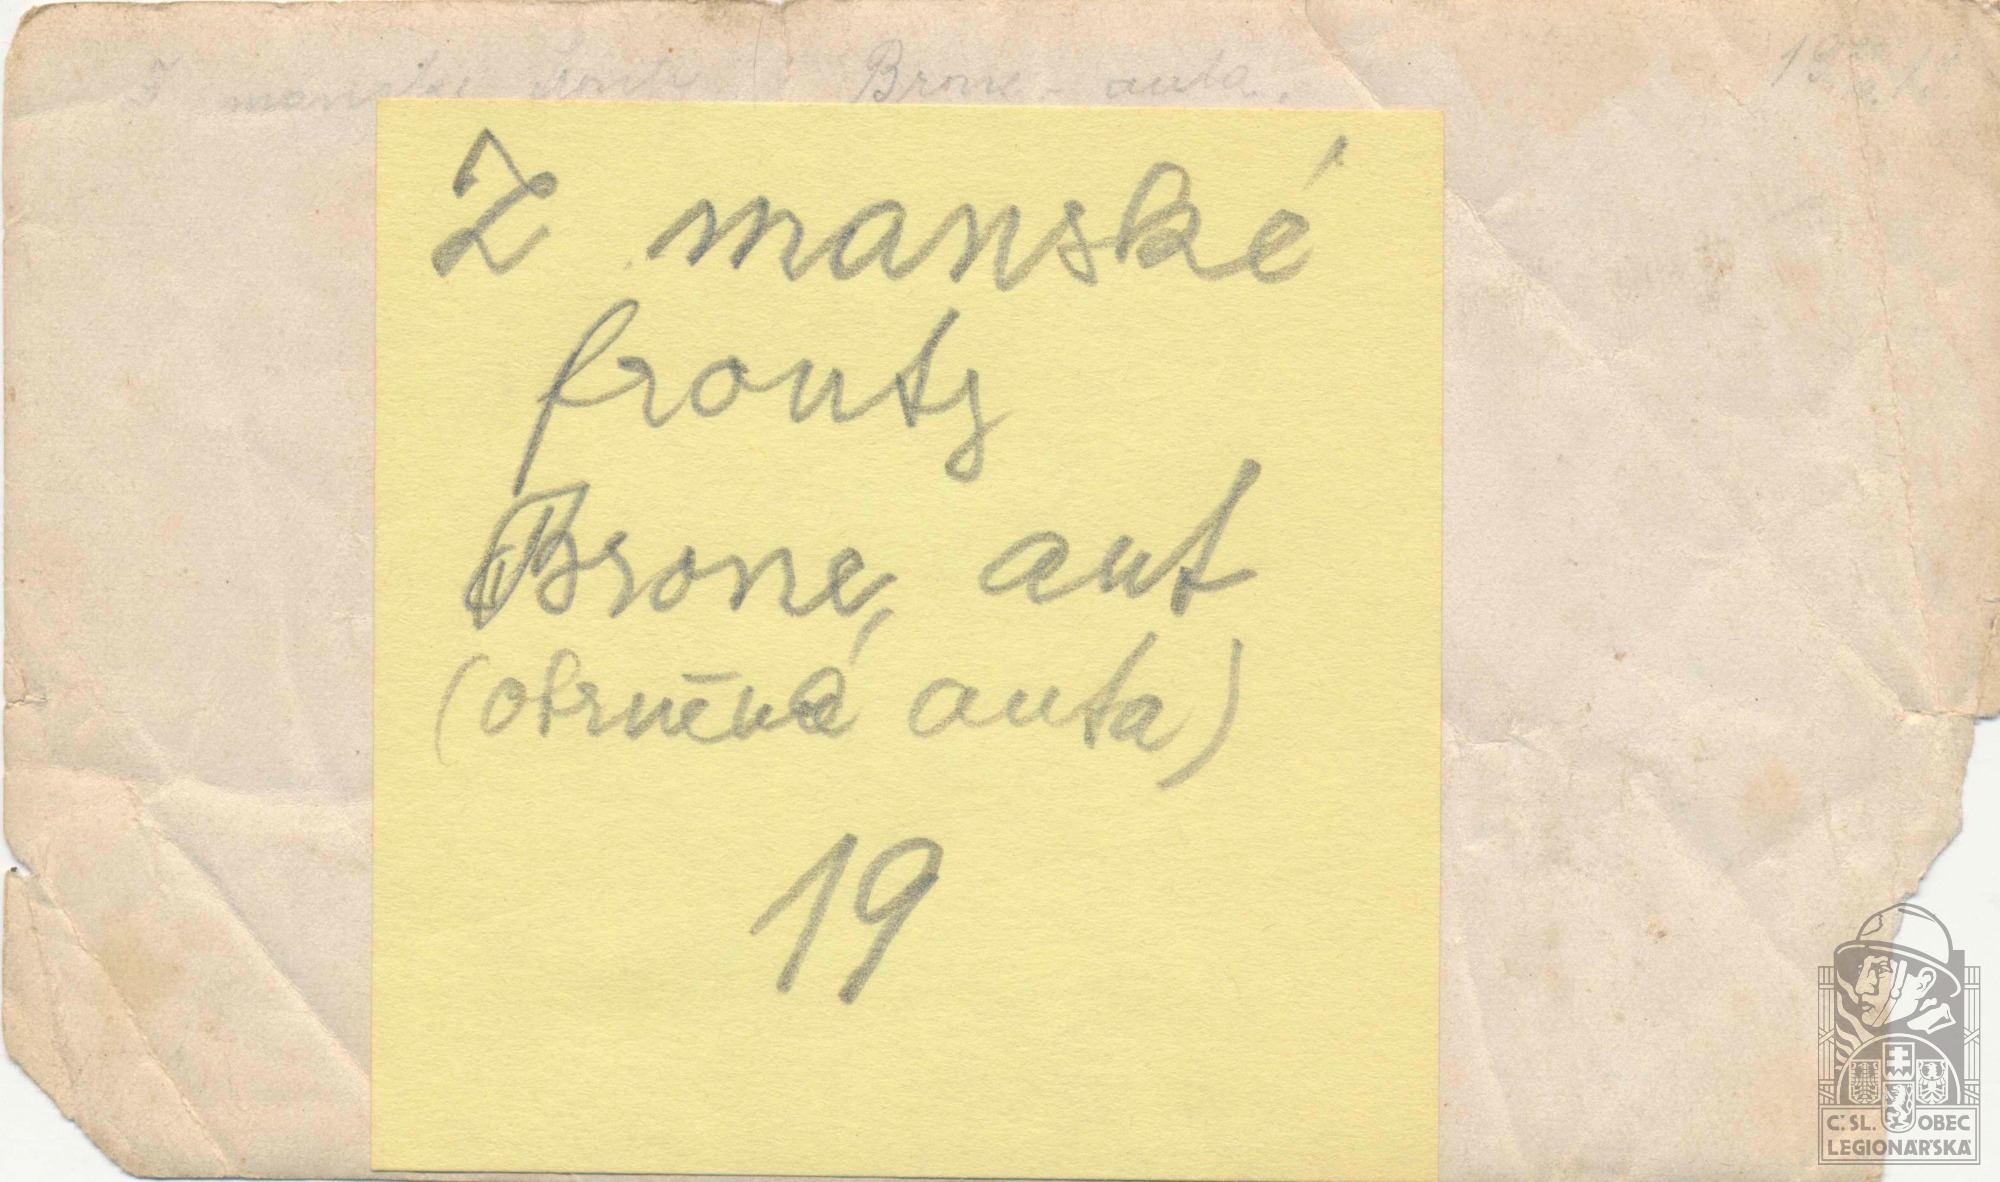 Z manské fronty Brone - auta.
Z manské
fronty
Brone, aut
(obrněná auta)
19
Č. SL. OBEC
LEGIONÁŘSKÁ